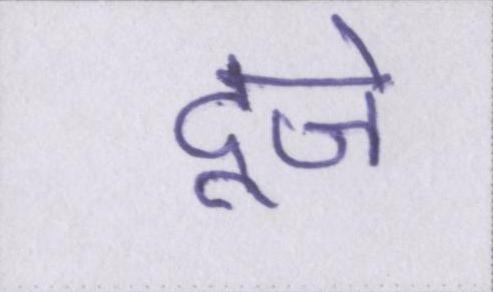 दूजे